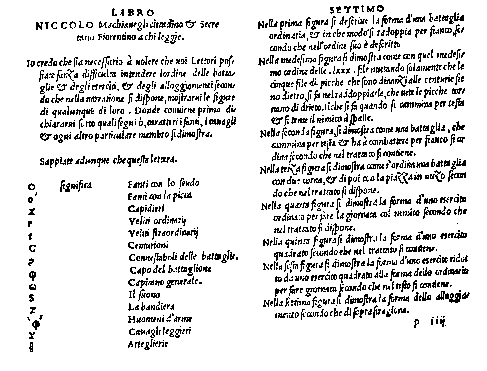 LIBRO
NICCOLO Machiauegli cittadino & Secre
tario Fiorentino a chi legge.
Io credo che sia necessario à volere che voi Lettori pos
siate senza difficultà intendere l'ordine delle batta
glie & degli eserciti, & degli alloggiamenti secon
do che nella narratione si dispone, mostrarui le figure
di qualunque di loro. Donde conuiene prima di
chiararui sotto quali segni ò, caratteri i fanti, i cauagli
& ogni altro particulare membro si dimostra.
Sappiate adunque che questa lettera.
O significa Fanti con lo scudo
Fanti con la picca
x Capidieci
Veliti ordinarij
Veliti straordinarij
C Centurioni
Connestaboli delle battaglie.
Capo del battaglione
Capitano generale.
S Il suono
Z La bandiera
Huomeni d'arme
Cauagli leggieri
Artiglierie
SETTIMO
Nella prima figura si descriue la forma d'una battaglia
ordinaria, & in che modo si radoppia per fianco, se-
condo che nell'ordine suo è descritto.
Nella medesima figura si dimostra come con quel medesi-
mo ordine delle .lxxx. file mutando solamente che le
cinque file di picche che sono dinanzi alle centurie sie
no dietro, si fa nel raddoppiarle, che tutte le picche tor
nano di dietro, il che si fa quando si cammina per testa
& si teme il nimico à spalle.
Nella seconda figura si dimostra come una battaglia, che
cammina per testa & ha à combattere per fianco si or
dina secondo che nel trattato si contiene.
Nella terza figura si dimostra come s'ordina una battaglia
con due corna, & di poi con la piazza in mezzo secon
do che nel trattato si dispone.
Nella quarta figura si dimostra la forma d'uno esercito
ordinato per fare la giornata col nimico secondo che
nel trattato si dispone.
Nella quinta figura si dimostra la forma d'uno esercito
quadrato secondo che nel testo si contiene.
Nella sesta figura si dimostra la forma d'uno esercito ridot
to da uno esercito quadrato alla forma dello ordinario
per fare giornata secondo che nel testo si contiene.
Nella settima figura si dimostra la forma dello alloggia
mento secondo che di sopra si ragiona.
P iiij